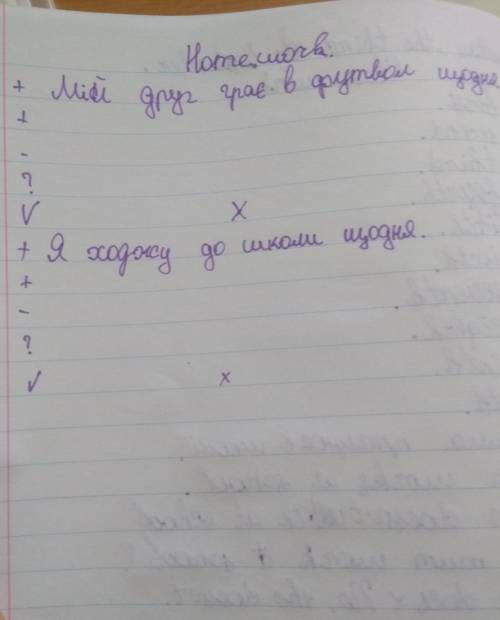 Homework.
+ Мій друг грає в футбол щодня
+
-
?
V X
+ Я ходжу до школи щодня.
+
-
?
V x